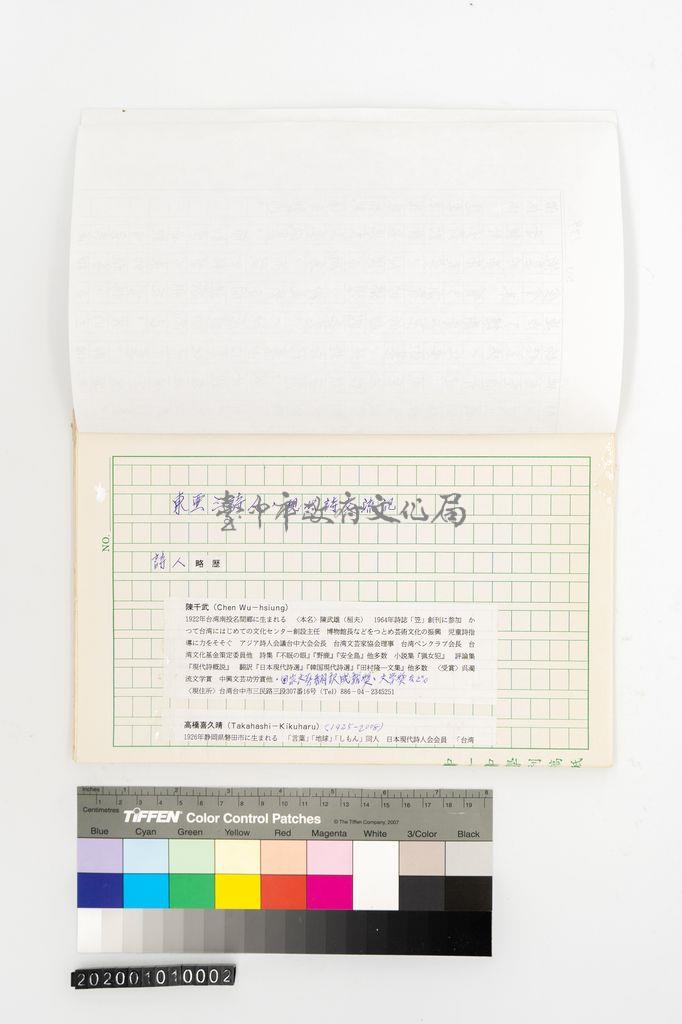 東亞
臺中市政府文化局
NO.
詩人 略歴
陳千武（Chen Wu－hsiung）
1922年台湾南投名間郷に生まれる 〈本名〉陳武雄（桓夫） 1964年詩誌「笠」創刊に参加 か
つて台湾にはじめての文化センター創設主任 博物館長などをつとめ芸術文化の振興 児童詩指
導に力をそそぐ アジア詩人会議台中大会会長 台湾文芸家協会理事 台湾ペンクラブ会長 台
湾文化基金策定委員他 詩集『不眠の眼』『野鹿』『安全島』他多数 小説集『猟女犯』 評論集
『現代詩概説』 翻訳『日本現代詩選』『韓国現代詩選』『田村隆一文集』他多数 〈受賞〉呉濁
流文学賞 中興文芸功労賞他・国家文芸翻訳成就奨・大学奨など。
〈現住所〉台湾台中市三民路三段307番16号（Tel）886－04－2345251
高橋喜久晴（Takahashi－Kikuharu）(1925-2008)
1926年静岡県磐田市に生まれる 「言葉」「地球」「しもん」同人 日本現代詩人会会員 「台湾
Inches
Centimetres
TIFFEN Color Control Patches
© The Tiffen Company, 2007
Blue Cyan Green Yellow Red Magenta White 3/Color Black
202001010002